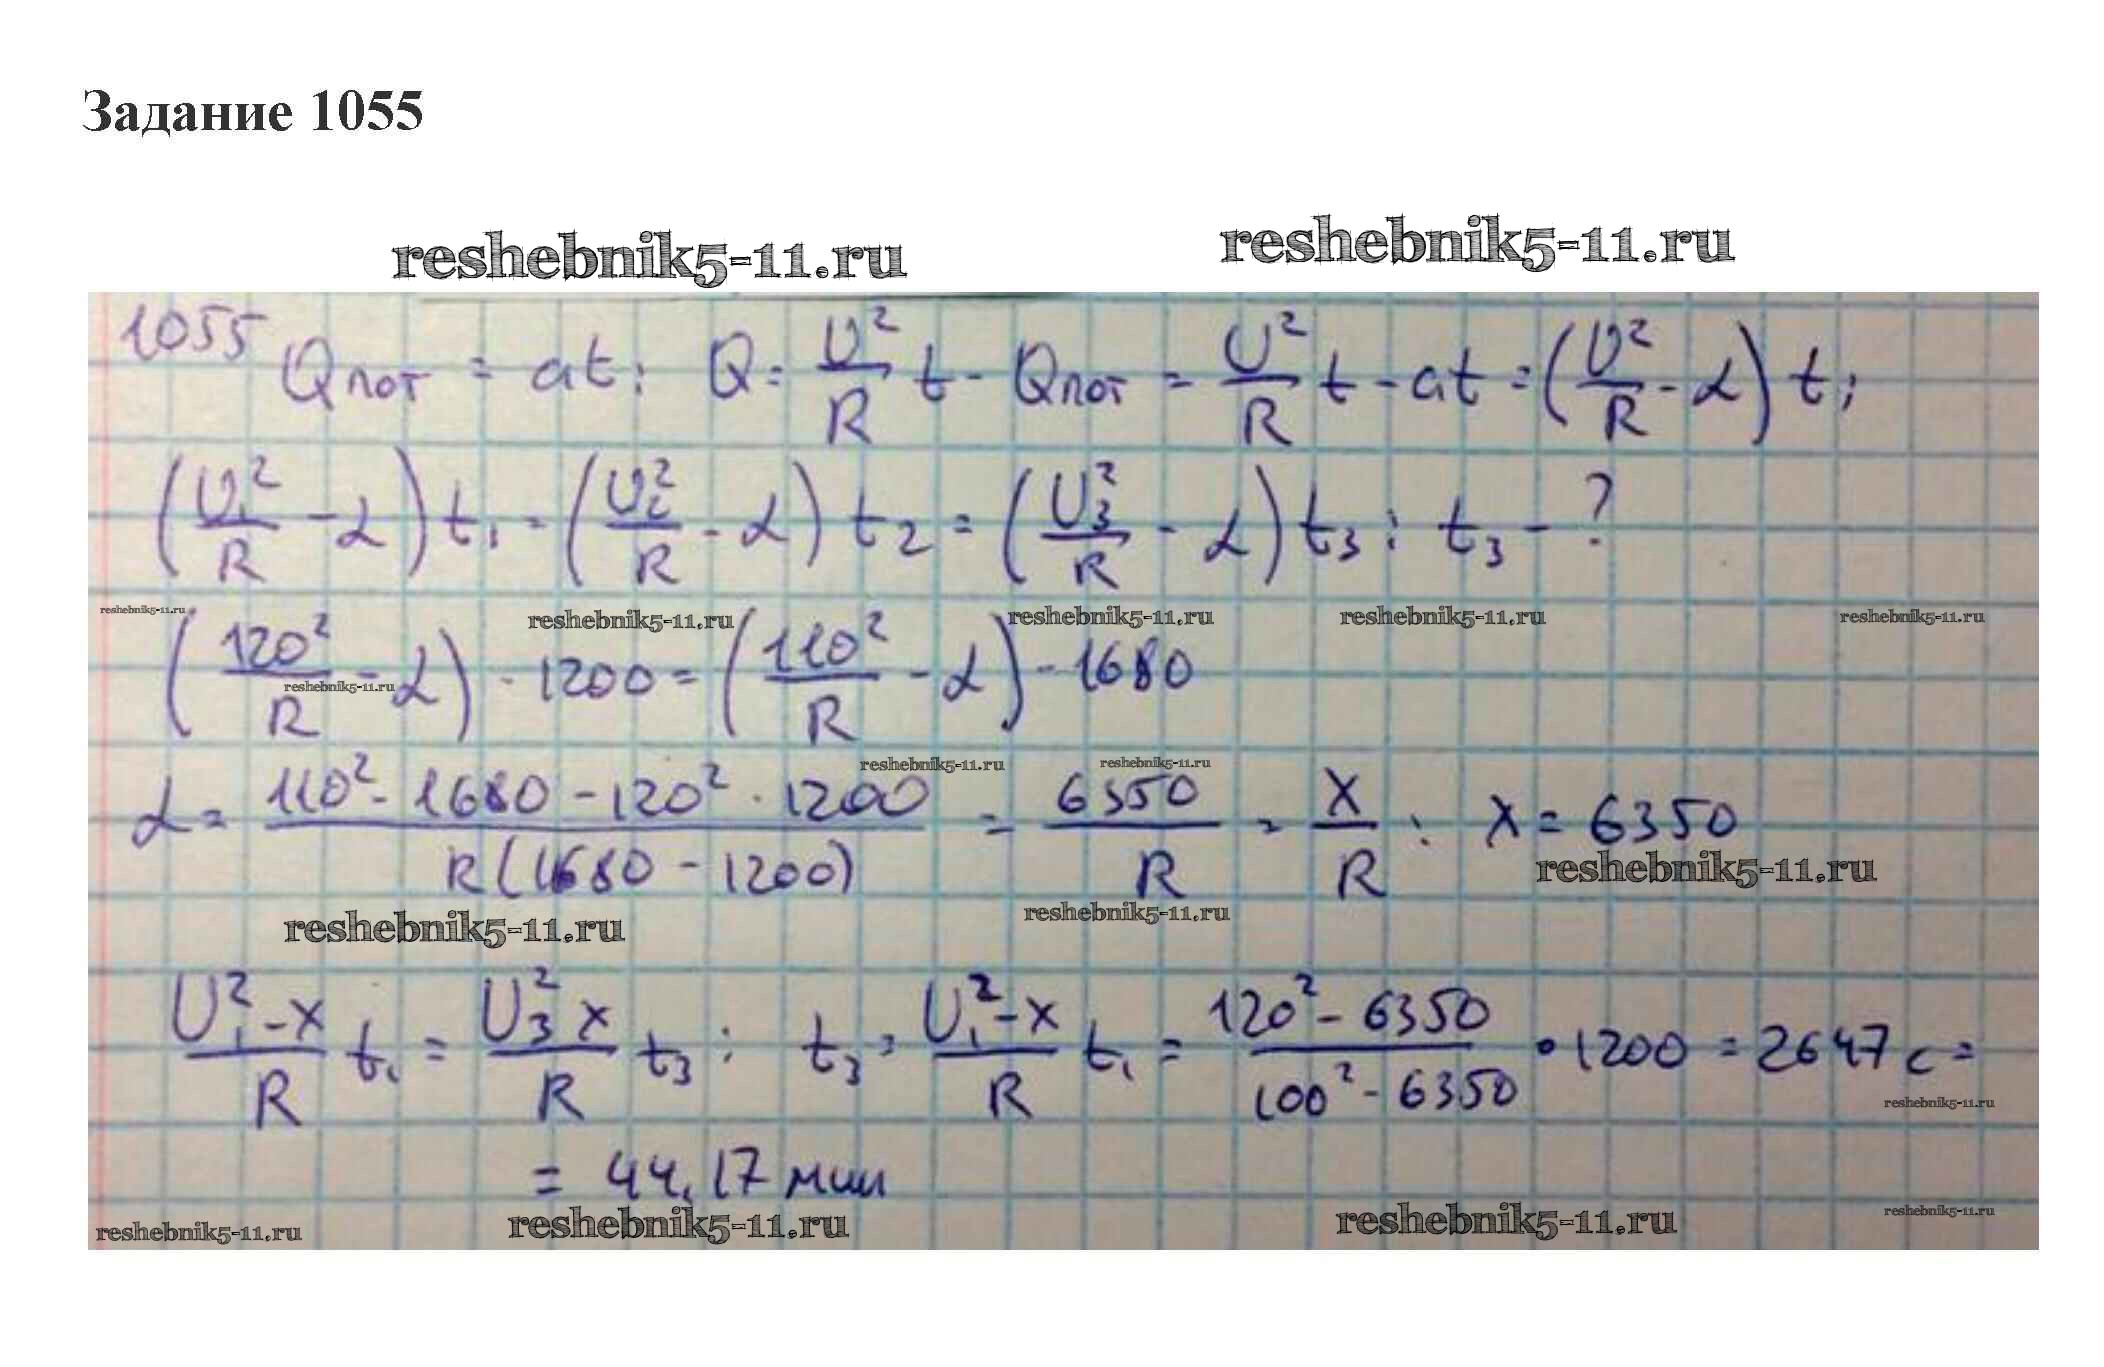 Задание 1055
reshebnik5-11.ru reshebnik5-11.ru
1055 Qпот = at; Q = U²/R t - Qпот = U²/R t - at = (U²/R - α) t;
(U₁²/R - α) t₁ = (U₂²/R - α) t₂ = (U₃²/R - α) t₃; t₃ - ?
reshebnik5-11.ru reshebnik5-11.ru reshebnik5-11.ru reshebnik5-11.ru reshebnik5-11.ru
(120²/R - α) · 1200 = (110²/R - α) · 1680
reshebnik5-11.ru
reshebnik5-11.ru reshebnik5-11.ru
α = 110² · 1680 - 120² · 1200 / R(1680 - 1200) = 6350/R = X/R; X = 6350
reshebnik5-11.ru
reshebnik5-11.ru reshebnik5-11.ru
U₁² - X/R t₁ = U₃² X/R t₃; t₃ = U₁² - X/R t₁ = 120² - 6350/100² - 6350 · 1200 = 2647 с =
reshebnik5-11.ru
= 44,17 мин
reshebnik5-11.ru reshebnik5-11.ru reshebnik5-11.ru reshebnik5-11.ru